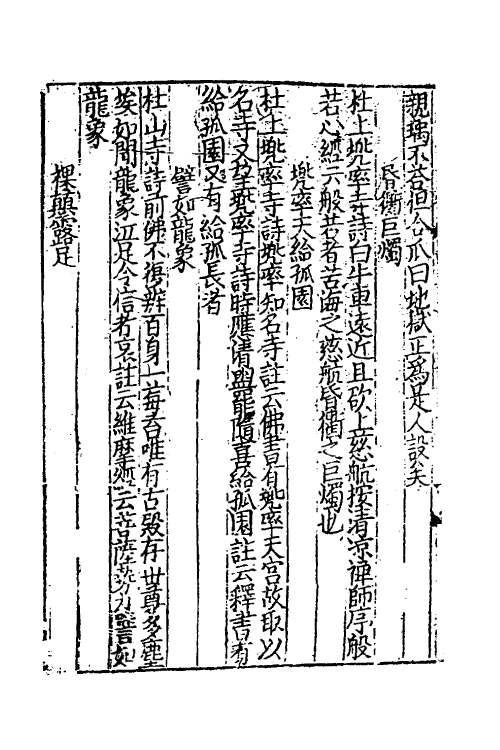 親瑀不荅但合爪曰地獄正為是人設矣
昏衢巨燭
杜上兠率寺詩白牛車遠近且欲上慈航按清凉禪師序般
若心經云般若者苦海之慈航昏衢之巨燭也
兠率天給孤園
杜上兠率寺詩兠率知名寺註云佛書有兠率天宮故取以
名寺又望兠率寺詩時應清盥罷隨喜給孤園註云釋書有
給孤園又有給孤長者
譬如龍象
杜山寺詩前佛不復辨百身一莓苔唯有古殿存世尊多塵
埃如聞龍象泣足令信者哀註云維摩經云菩薩勢力譬如
龍象
裸顛露足